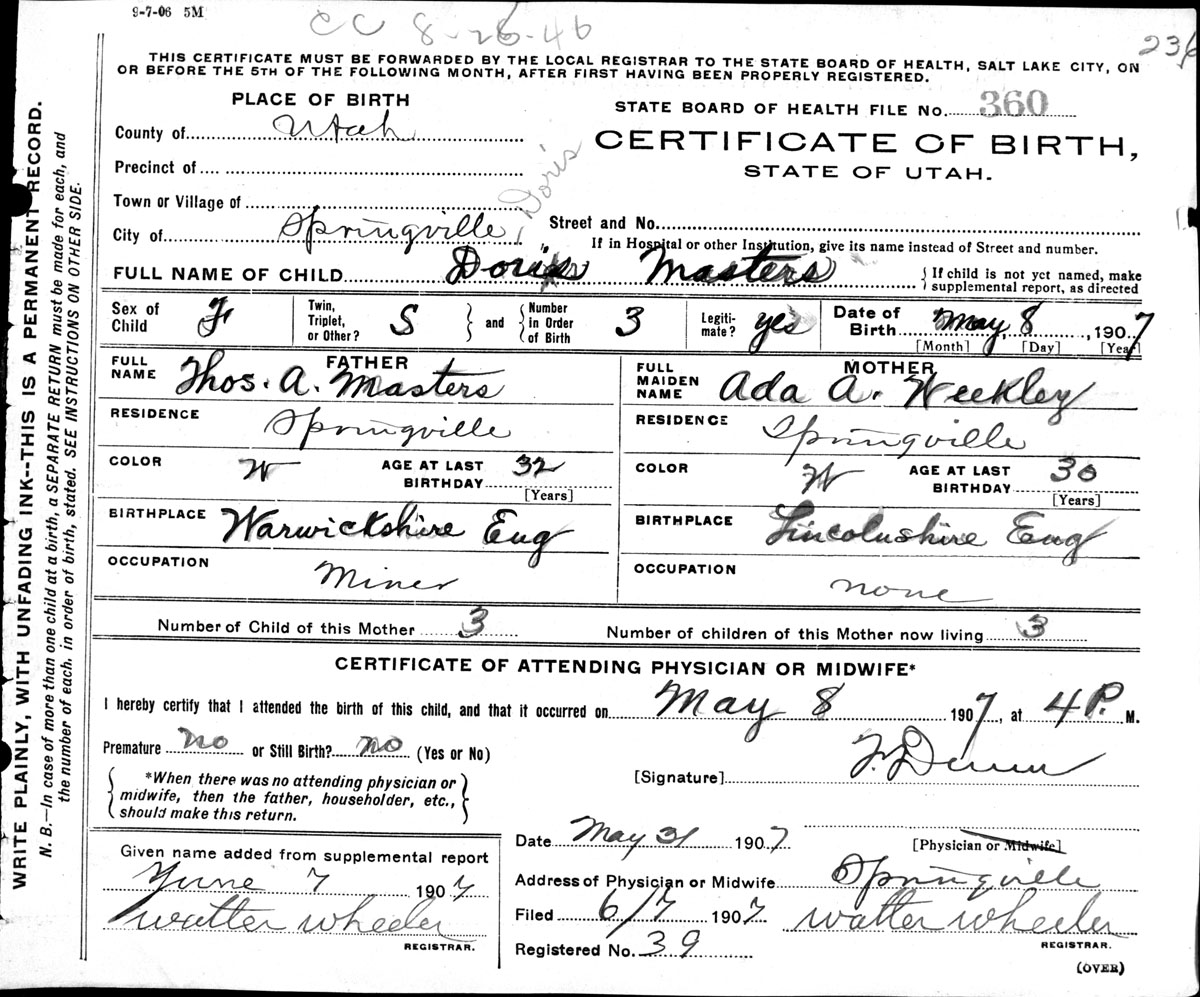 9-7-06 5M
CC 8-26-46
236
THIS CERTIFICATE MUST BE FORWARDED BY THE LOCAL REGISTRAR TO THE STATE BOARD OF HEALTH, SALT LAKE CITY, ON
OR BEFORE THE 5TH OF THE FOLLOWING MONTH, AFTER FIRST HAVING BEEN PROPERLY REGISTERED.
WRITE PLAINLY, WITH UNFADING INK--THIS IS A PERMANENT RECORD.
N. B.—In case of more than one child at a birth, a SEPARATE RETURN must be made for each, and
the number of each, in order of birth, stated. SEE INSTRUCTIONS ON OTHER SIDE.
PLACE OF BIRTH
STATE BOARD OF HEALTH FILE No. 360
County of Utah
CERTIFICATE OF BIRTH,
STATE OF UTAH.
Precinct of
Town or Village of
Doris
City of Springville
Street and No.
If in Hospital or other Institution, give its name instead of Street and number.
FULL NAME OF CHILD Doris Masters
{If child is not yet named, make
supplemental report, as directed
Sex of Child F
Twin, Triplet, or Other? S } and { Number in Order of Birth 3
Legiti-mate? yes
Date of Birth May 8, 1907
[Month] [Day] [Year]
FATHER
FULL NAME Thos. A. Masters
RESIDENCE Springville
COLOR W AGE AT LAST BIRTHDAY 32
[Years]
BIRTHPLACE Warwickshire Eng
OCCUPATION Miner
MOTHER
FULL MAIDEN NAME Ada A. Weekley
RESIDENCE Springville
COLOR W AGE AT LAST BIRTHDAY 30
[Years]
BIRTHPLACE Lincolnshire Eng
OCCUPATION none
Number of Child of this Mother 3 Number of children of this Mother now living 3
CERTIFICATE OF ATTENDING PHYSICIAN OR MIDWIFE*
I hereby certify that I attended the birth of this child, and that it occurred on May 8 1907, at 4 P. M.
Premature no or Still Birth? no (Yes or No)
{*When there was no attending physician or
midwife, then the father, householder, etc.,
should make this return.}
[Signature] F. Dunn
Date May 31 1907
[Physician or Midwife]
Address of Physician or Midwife Springville
Filed 6/7 1907 Walter Wheeler
REGISTRAR.
Registered No. 39
Given name added from supplemental report
June 7 1907
Walter Wheeler
REGISTRAR.
(OVER)